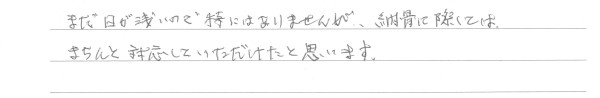 まだ日が浅いので特にはありませんが、納骨に際しては、
きちんと対応していただけたと思います。